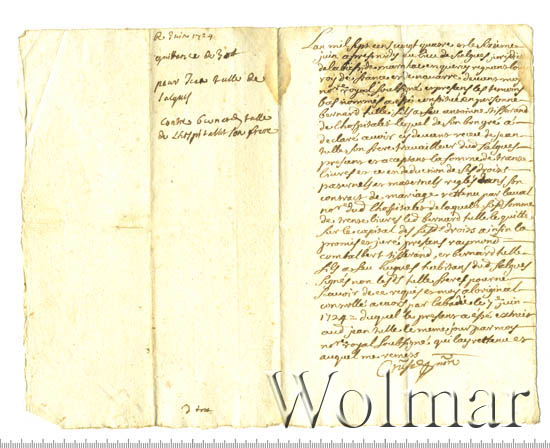 R. Juin 1724
quittance de 30 lt
pour Jean tulle de
Salques
Contre bernard tulle
de L'hospitalet son frere
3 lt
L'an mil sept cens vingt quatre et le sixieme
juin apres midy au lieu de Salques
de la
roy de france et de navarre devant moy
nore royal soubsigné, et presens les temoins
bas nommés a esté constitué en personne
bernard tulle fils a feu antoine tisserand
de l'hospitalet lequel de son bon gré a
declaré avoir cy devant receu de jean
tulle son frere travailleur dud salques
present et aceptant la somme de trente
livres et ce en deduction de ses droits
paternels et maternels reglés dans son
contract de mariage retenu par
nore dud l'hospitalet de laquelle somme
de trente livres led bernard tulle le quitte
sur le capital des droits ainsin la
promis et juré, presens raymond
combalbert tisserand, et bernard tulle
fils a feu habitans dud salques
signés non led tulle freres pour ne
scavoir de ce requis et moy a l'original
controllé a par le 7e juin
1724 = duquel le present a esté extrait
aud jean tulle le meme jour par moy
nore royal soubsigné, qui l'ay retenu et
auquel me remets
Wolmar